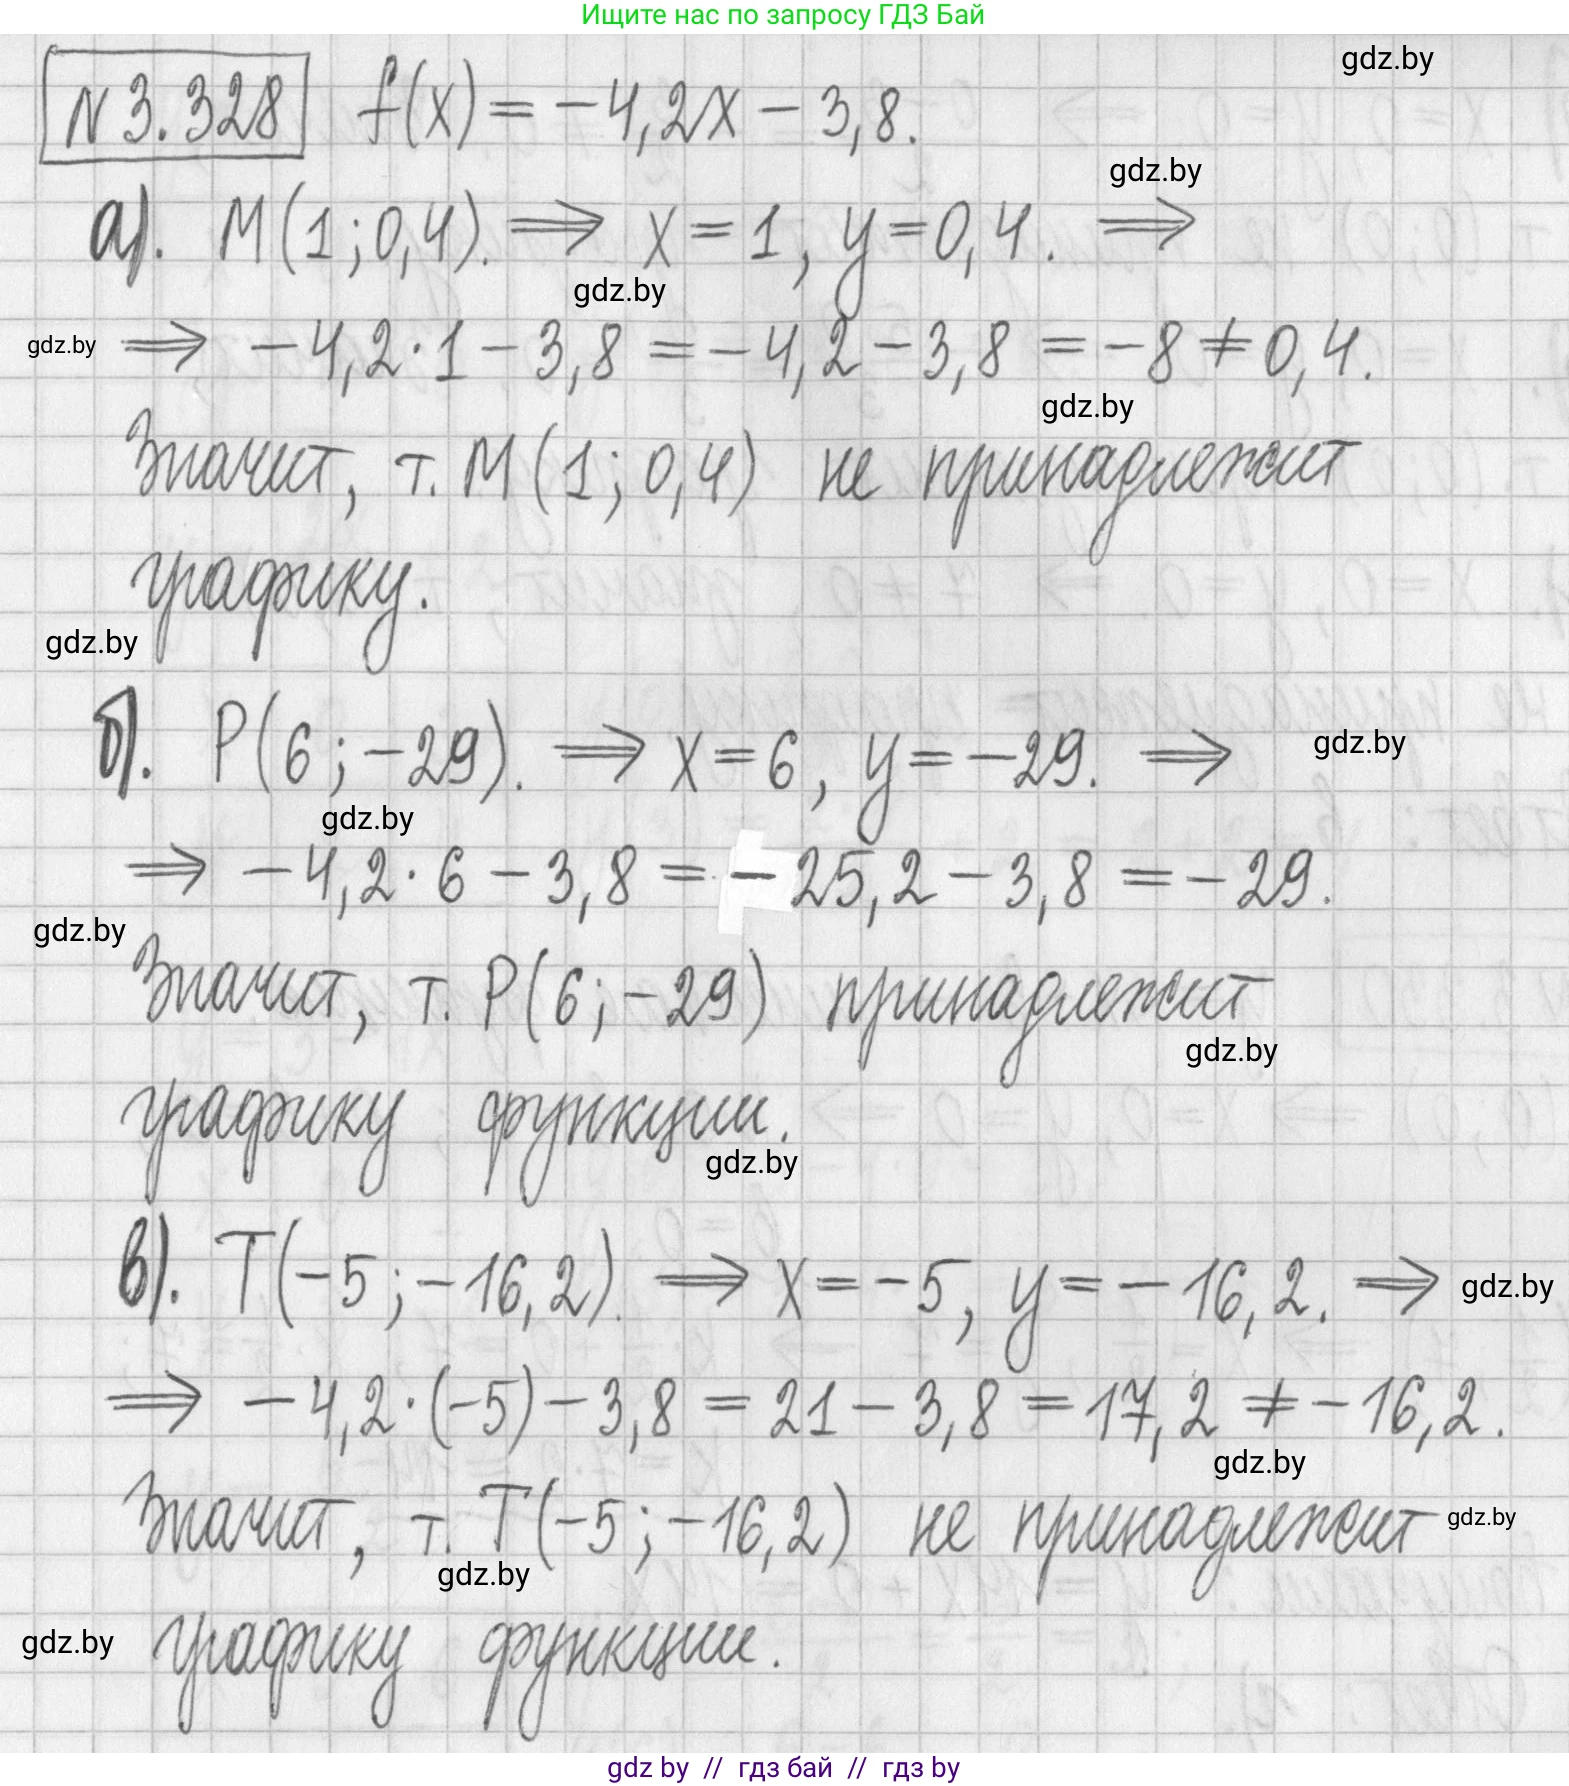 Ищите нас по запросу ГДЗ Бай
gdz.by
N 3.328 f(x) = -4,2x - 3,8.
gdz.by
а). M(1; 0,4). ⟹ x = 1, y = 0,4. ⟹
gdz.by
gdz.by ⟹ -4,2·1 - 3,8 = -4,2 - 3,8 = -8 ≠ 0,4.
gdz.by
Значит, т. M(1; 0,4) не принадлежит
графику.
gdz.by
б). P(6; -29). ⟹ x = 6, y = -29. ⟹ gdz.by
gdz.by
⟹ -4,2·6 - 3,8 = -25,2 - 3,8 = -29.
gdz.by
Значит, т. P(6; -29) принадлежит
gdz.by
графику функции.
gdz.by
в). T(-5; -16,2). ⟹ x = -5, y = -16,2. ⟹ gdz.by
⟹ -4,2·(-5) - 3,8 = 21 - 3,8 = 17,2 ≠ -16,2.
gdz.by
Значит, т. T(-5; -16,2) не принадлежит gdz.by
gdz.by
gdz.by графику функции.
gdz by // гдз бай // гдз by